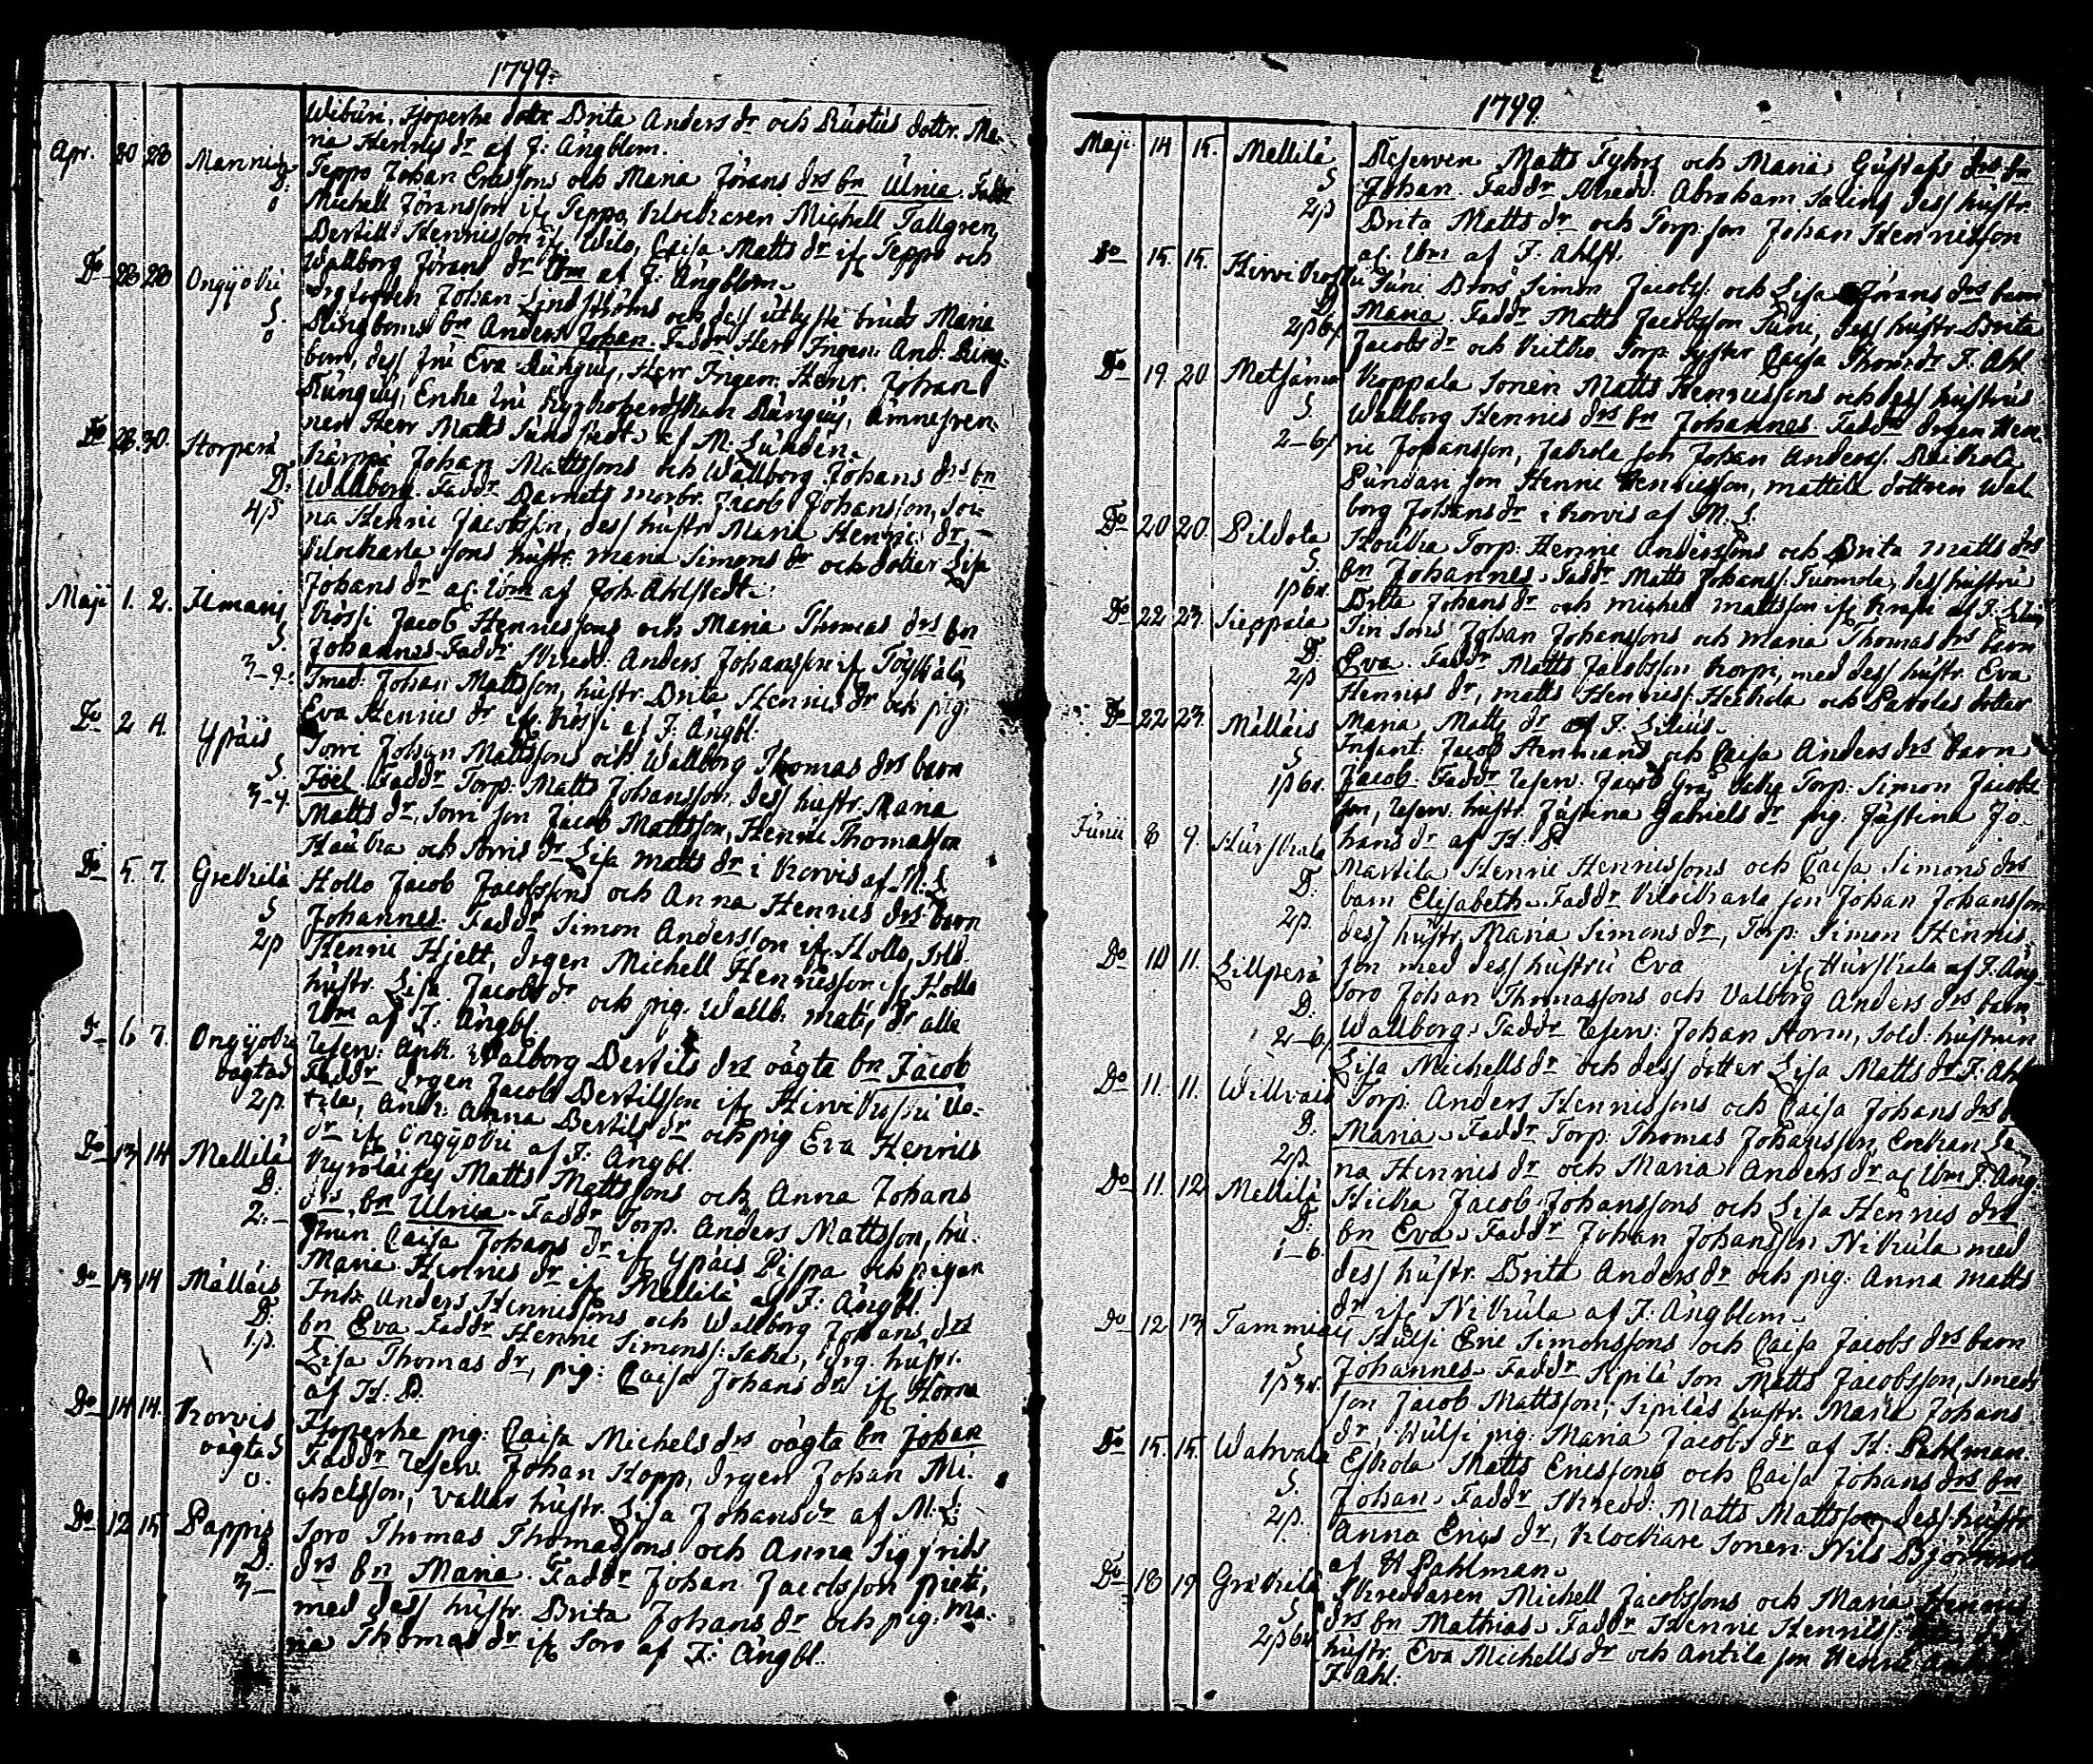 1799.
Wibüri, Hjoperhe dottr Brita Anders dr och Rüstüs dottr. Ma-
ria Henrics dr af J: Ängblom.
Apr. 20 28 Mannis Teppo Johan Ericssons och Maria Jörans drs bn Ulrica. Faddr
D. Michell Jöransson ifr Teppo, Klockaren Michell Tallgren,
0 Bertill Henricsson ifr Wilo, Caisa Matts dr ifr Teppo och
Wallborg Jörans dr Ibm af J: Ängblom.
Do 28 28 Ongÿobü Johan Lindströms och dess Maria
S. Ringboms bn Anders Johan. Faddr Herr Ingen: And: Ring-
0 bom, dess Frü Eva Rüngüis, Herr Ingen: Henr. Johan
Rüngüis, Enke Frü Rüngüis, ämnesven-
nen Herr Matts Sündstedt af M: Lündén.
Do 28. 30. Storperä Kärppä Johan Mattssons och Wallborg Johans drs bn
D. Wallborg. Faddr Barnets morbr. Jacob Johansson, Soi-
4 p na Henric Jacobsson, dess hüstr Maria Henrics dr,
Klockarla sons hüstr. Maria Simons dr och dotter Lisa
Johans dr af: Ibm af Joh: Ahlstedt.
Maji 1. 2. Ilmaris Kössi Jacob Henricssons och Maria Thomas drs bn
S. Johannes. Faddr Skredd: Anders Johansson ifr Töÿkkälä,
3-9. Smed: Johan Mattsson, hüstr. Brita Henrics dr och pig:
Eva Henrics dr ifr Kössi af J: Ängbl.
Do 2 4. Ypäis Sorri Johan Mattssons och Wallborg Thomas drs barn
S. Joel. Faddr Torp: Matts Johansson, dess hüstr. Maria
3-4. Matts dr, Sorri son Jacob Mattsson, Henric Thomasson
Haükka och Sorris dr Lisa Matts dr i Korvis af M: L.
Do 5. 7. Gretkilä Hollo Jacob Jacobssons och Anna Henrics drs barn
S Johannes. Faddr Simon Andersson ifr Hollo, Sold.
2 p Henric Hjelt, drgen Michell Henricsson ifr Hollo
hüstr. Lisa Jacobs dr och pig: Wallb: Matts dr alla
Ibm af J: Ängbl.
Do 6 7. Ongÿobü Reserv: Ank. Walborg Bertils drs oägta bn Jacob
oägtaS Faddr drgen Jacob Bertilsson ifr Hirvikoski
2 p. Ank: Anna Bertils dr och pig Eva Henrics
dr ifr Ongÿobü af J: Ängbl.
Do 13 14 Mellilä Kyröläises Matts Mattssons och Anna Johans
D. drs bn Ulrica. Faddr Torp. Anders Mattsson, hü-
2.- strun Caisa Johans dr ifr Ypäis Pispa och pigan
Maria Henrics dr ifr Mellilä af J: Ängbl.
Do 13 14 Mälläis Inh: Anders Henricssons och Wallborg Johans drs
D. bn Eva. Faddr Henric Simonss: hüstr.
1 p. Lisa Thomas dr, pig: Caisa Johans dr ifr
af H: P.
Do 14 14. Korvis Hjoperhe pig: Caisa Michels drs oägta bn Johan
oägtaS Faddr Reserv. Johan Hopp, drgen Johan Mi-
0. chelsson, Vallar hüstr. Lisa Johans dr af M: L:
Do 12 15 Pappis Soro Thomas Thomassons och Anna Sigfrids
D. drs bn Maria. Faddr Johan Jacobsson Prieti,
3- med dess hüstr. Brita Johans dr och pig: Ma-
ria Thomas dr ifr Soro af J: Ängbl.
1799.
Maji 14 15. Mellilä Reserven Matts Fyhrs och Maria Güstafs drs bn
S Johan. Faddr Skredd: Abraham Salins dess hüstr.
2 p Brita Matts dr och Torp. son Johan Henricsson
af: Ibm af J: Ahlst.
Do 15. 15. Hirvikoski Tüni Simon Jacobss: och Lisa Jörans drs barn
D. Maria. Faddr Matts Jacobsson Tüni, dess hüstr. Brita
2 p 6. Jacobs dr och Torp: Syster Caisa Thoms dr J: Ahl
Do 19. 20 Metsämaa Koppala Sonen Matts Henricssons och dess hüstrüs
S Wallborg Henrics drs bn Johannes. Faddr drgen Hen-
2-6 ric Johansson, Jakola son Johan Anderss.
Pündari son Henric Henricsson, Mattila dottren Wal-
borg Johans dr i Korvis af M. L.
Do 20 20. Pildota Torp: Henric Anderssons och Brita Matts drs
S. bn Johannes. Faddr Matts Johanss: Tüomola, dess hüstrü
1 p 6. Brita Johans dr och Michell Mattsson ifr
Do 22 23. Sieppala Johan Johanssons och Maria Thomas drs barn
D. Eva. Faddr Matts Jacobsson Korpi, med dess hüstr. Eva
2 p Henrics dr, Matts Henricss: Heikola och Pavolas dotter
Maria Matts dr af J: Lilius.
Do 22 23. Mälläis Infant: Jacob Henmans och Caisa Anders drs barn
S Jacob. Faddr Reserv: Jacob Grå, Torp: Simon Jacobs-
1 p 6. son, Reserv. hüstr. Jüstina Gabriels dr pig: Jüstina Jo-
hans dr af H: P
Junii 8 9. Hürskala Martila Henric Henricssons och Caisa Simons drs
D. barn Elisabeth. Faddr Klockarla son Johan Johansson
2 p. dess hüstr. Maria Simons dr, Torp: Simon Henrics-
son med dess hüstrü Eva ifr Hürskala af J: Äng
Do 10 11. Lillperä Soro Johan Thomassons och Valborg Anders drs barn
D. Wallborg. Faddr Reserv: Johan Storm, Sold: hüstrün
2-6 Lisa Michells dr och dess dotter Lisa Matts dr J: Ahl
Do 11. 11. Willvais Torp: Anders Henricssons och Caisa Johans drs
D. Maria. Faddr Torp: Thomas Johansson, Enkan Le-
2 p. na Henrics dr och Maria Anders dr af Ibm J: Äng
Do 11. 12 Mellilä Hiekka Jacob Johanssons och Lisa Henrics drs
D. bn Eva. Faddr Johan Johansson Nikküla med
1-6. dess hüstr. Brita Anders dr och pig: Anna Matts
dr ifr Nikküla af J: Ängblom.
Do 12 13 Tammiais Eric Simonssons och Caisa Jacobs drs barn
S Johannes. Faddr Sipilä Son Matts Jacobsson, Smeds
1 p 3. son Jacob Mattsson, Sipiläs hüstr. Maria Johans
dr, pig: Maria Jacobs dr af H: Pahlman.
Do 15. 15. Wahvala Eskola Matts Ericssons och Caisa Johans drs bn
S. Johan. Faddr Skredd: Matts Mattsson dess hüstr
2 p. Anna Erics dr, Klockare Sonen Nils
af H Pahlman.
Do 18 19 Gräkkilä Skreddaren Michell Jacobssons och Maria Henrics
S drs bn Mathias. Faddr Henric Henricss:
2 p 6. hüstr. Eva Michells dr och Antila son Henric
J: Ahl: